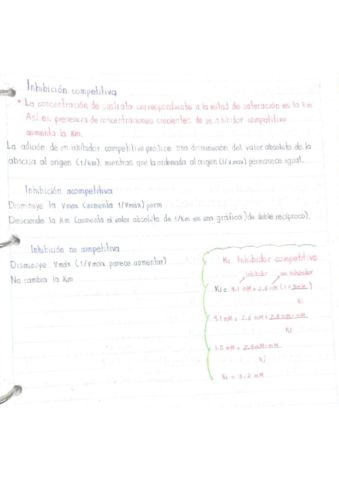 Inhibición competitiva
* La concentración de sustrato correspondiente a la mitad de saturación es la Km
Así en presencia de concentraciones crecientes de un inhibidor competitivo
aumenta la Km.
La adición de un inhibidor competitivo produce una disminución del valor absoluto de la
abscisa al origen (1/Km), mientras que la ordenada al origen (1/Vmax) permanece igual.
Inhibición acompetitiva
Disminuye la Vmax (aumenta 1/Vmax)
Desciende la Km (aumenta el valor absoluto de 1/Km en una gráfica) de doble recíproco).
Inhibición no competitiva
Disminuye Vmax (1/Vmax parece aumentar)
No cambia la Km
Ki Inhibidor competitivo
inhibidor no inhibidor
Ki
Ki
Ki